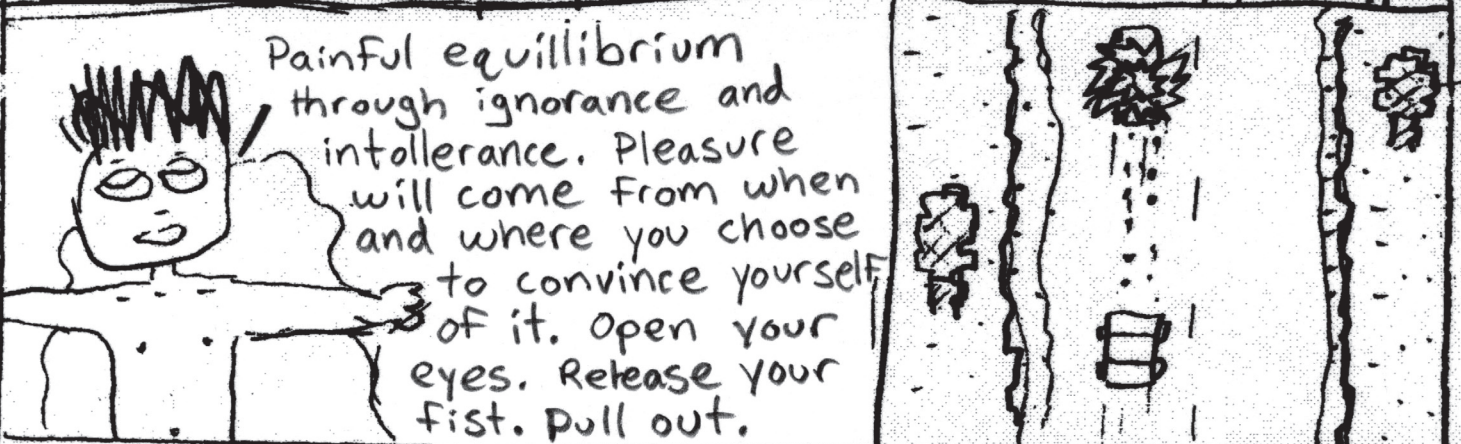 Painful equillibrium
through ignorance and
intollerance. Pleasure
will come from when
and where you choose
to convince yourself
of it. Open your
eyes. Release your
fist. Pull out.